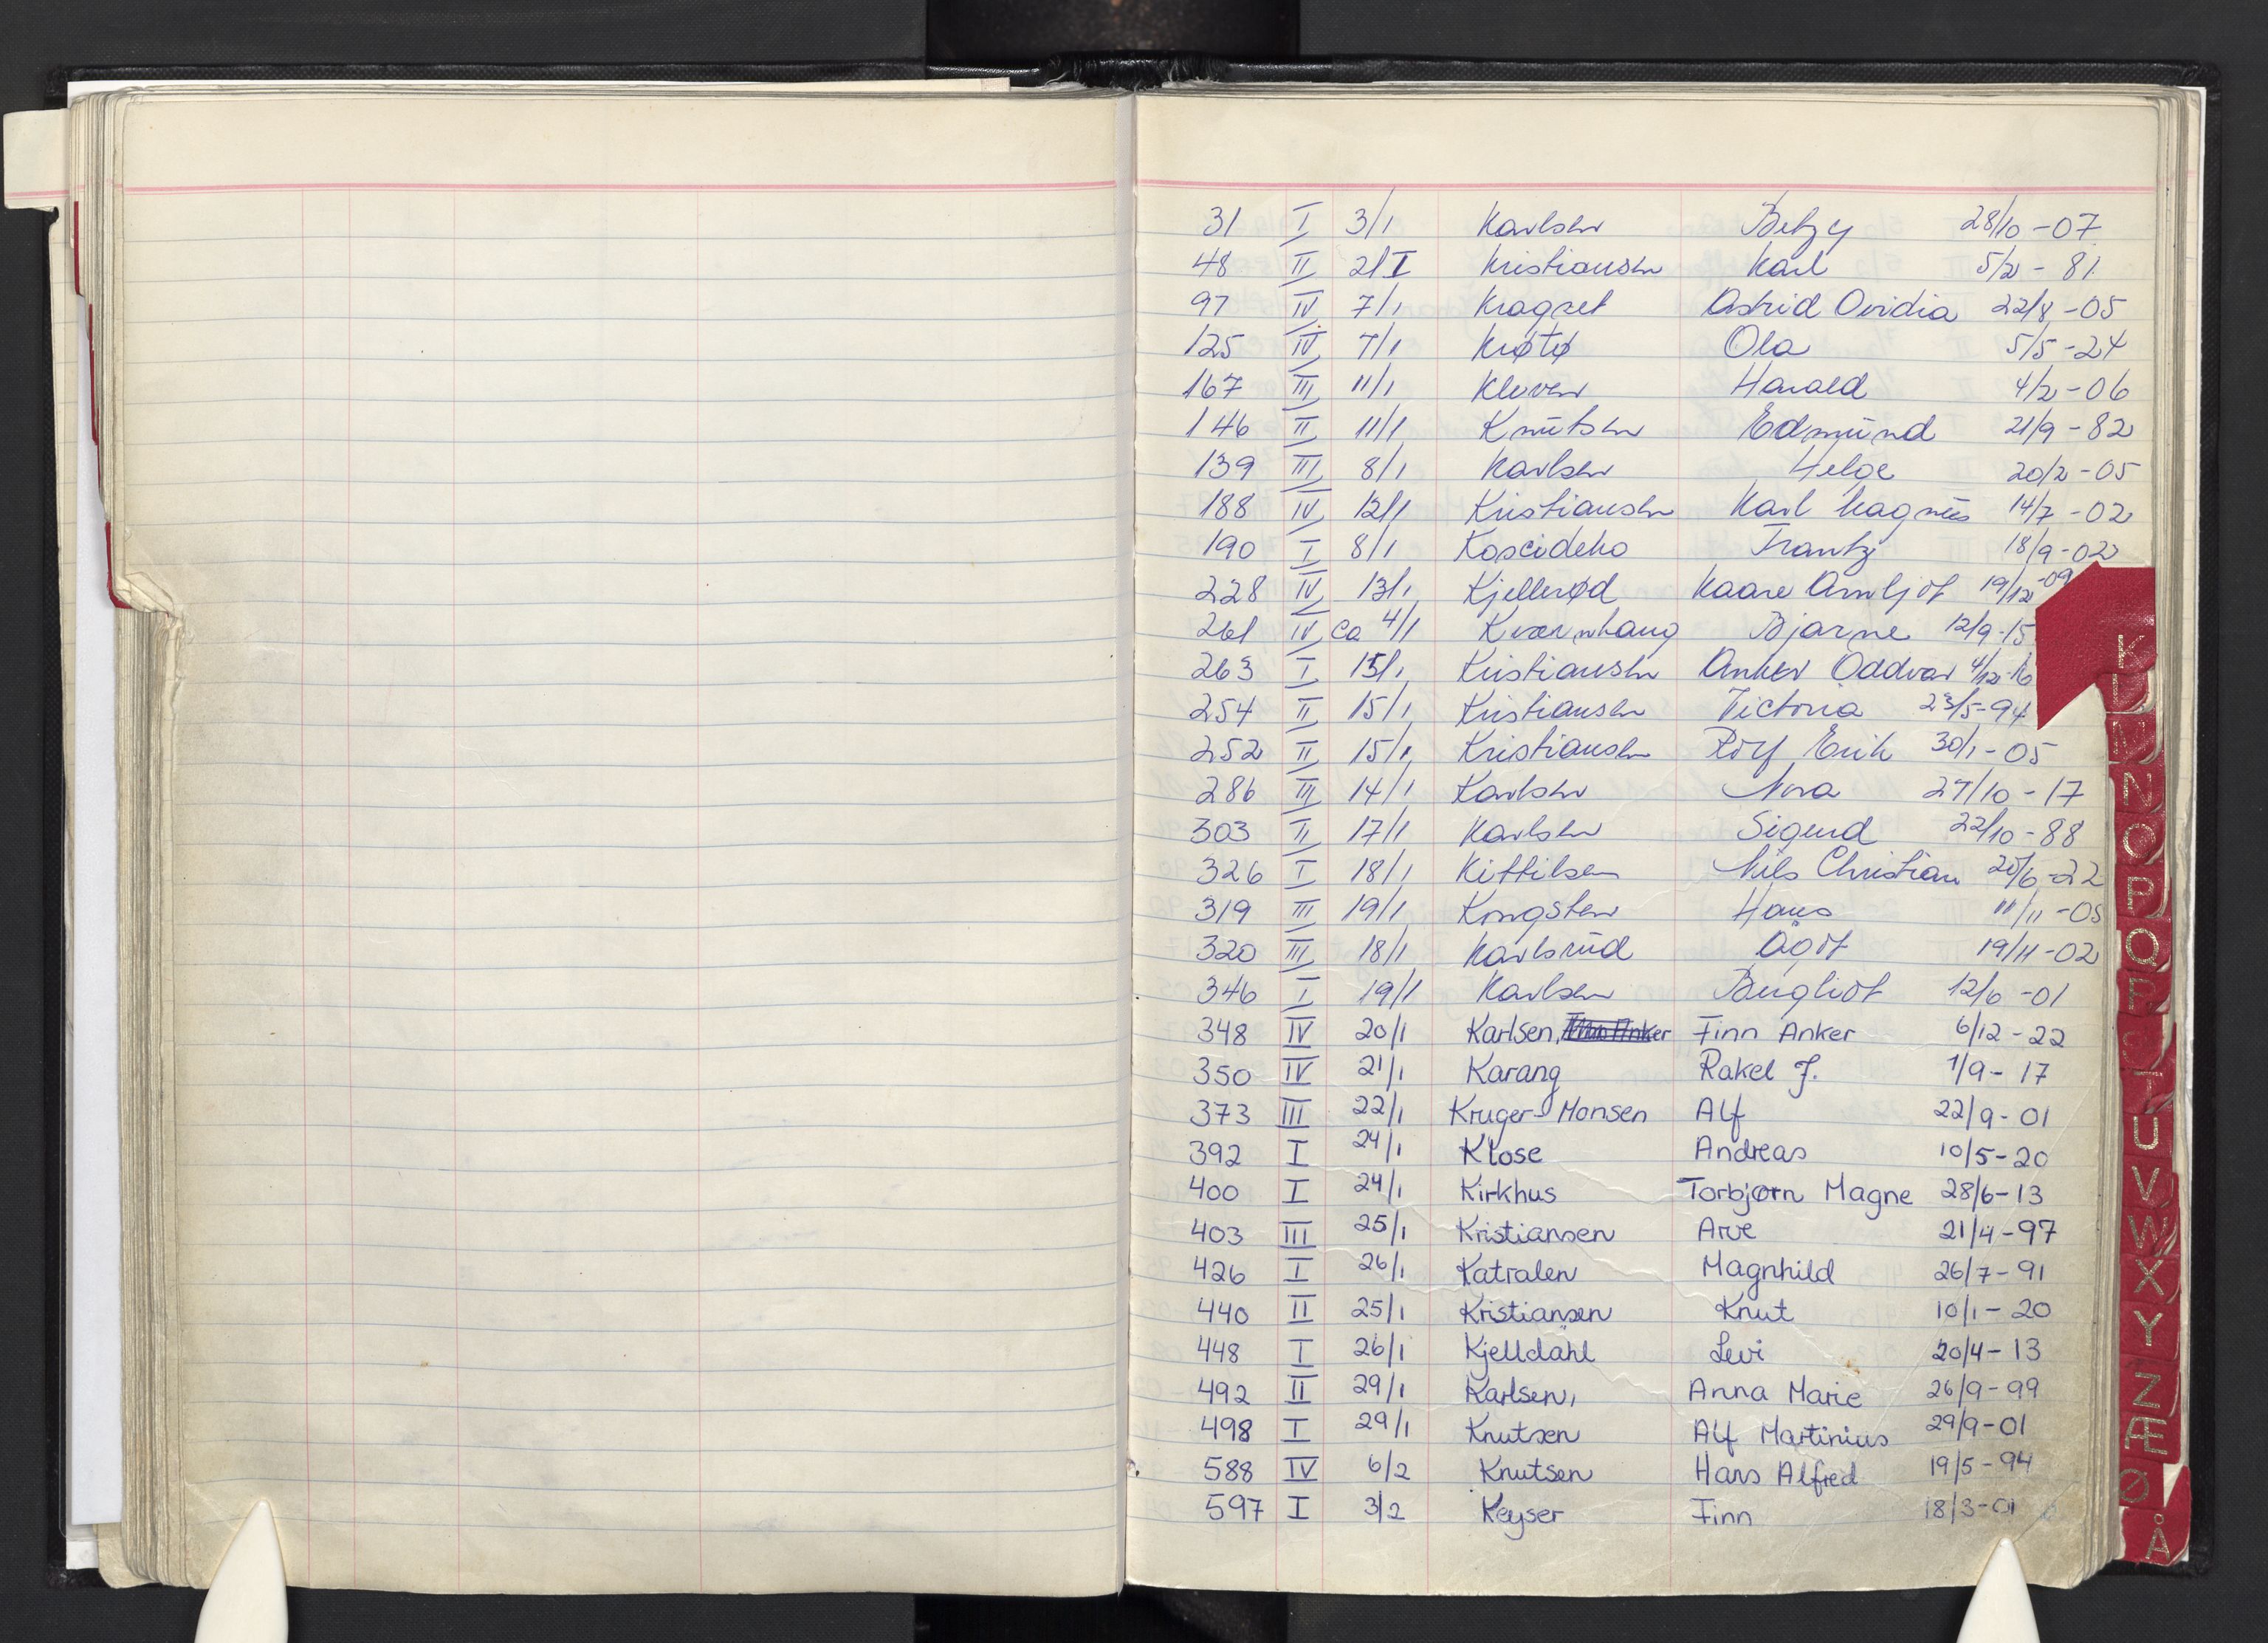 31 I 3/1 Karlsen Betzy 28/10-07
48 II 2/I Kristiansen Karl 5/2-81
97 IV 7/1 Kragset Astrid Ovidia 22/8-05
125 IV 7/1 Krøtø Ola 5/5-24
167 III 11/1 Kleven Harald 4/2-06
146 II 11/1 Knutsen Edmund 21/9-82
139 III 8/1 Karlsen Helge 20/2-05
188 IV 12/1 Kristiansen Karl Magnus 14/7-02
190 I 8/1 Koscideko Frantz 18/9-02
228 IV 13/1 Kjellerød Kaare Arnljot 19/12-09
261 IV ca 4/1 Kvernhaug Bjarne 12/9-15
263 I 15/1 Kristiansen Anker Oddvar 4/12-16
254 II 15/1 Kristiansen Victoria 23/5-94
252 II 15/1 Kristiansen Rolf Erik 30/1-05
286 III 14/1 Karlsen Nora 27/10-17
303 II 17/1 Karlsen Sigurd 22/10-88
326 I 18/1 Kittilsen Nils Christian 20/6-22
319 III 19/1 Kongsten Hans 11/11-05
320 III 18/1 Karlsrud Ågot 19/11-02
346 I 19/1 Karlsen Bergliot 12/6-01
348 IV 20/1 Karlsen, Finn Anker 6/12-22
350 IV 21/1 Karang Rakel J. 1/9-17
373 III 22/1 Kruger-Monsen Alf 22/9-01
392 I 24/1 Klose Andreas 10/5-20
400 I 24/1 Kirkhus Torbjørn Magne 28/6-13
403 III 25/1 Kristiansen Arve 21/4-97
426 I 26/1 Katralen Magnhild 26/7-91
440 II 25/1 Kristiansen Knut 10/1-20
448 I 26/1 Kjelldahl Levi 20/4-13
492 II 29/1 Karlsen, Anna Marie 26/9-99
498 I 29/1 Knutsen Alf Martinius 29/9-01
588 IV 6/2 Knutsen Hans Alfred 19/5-94
597 I 3/2 Keyser Finn 18/3-01
K
N
O
P
Q
R
T
U
V
W
X
Y
Z
Æ
Ø
Å